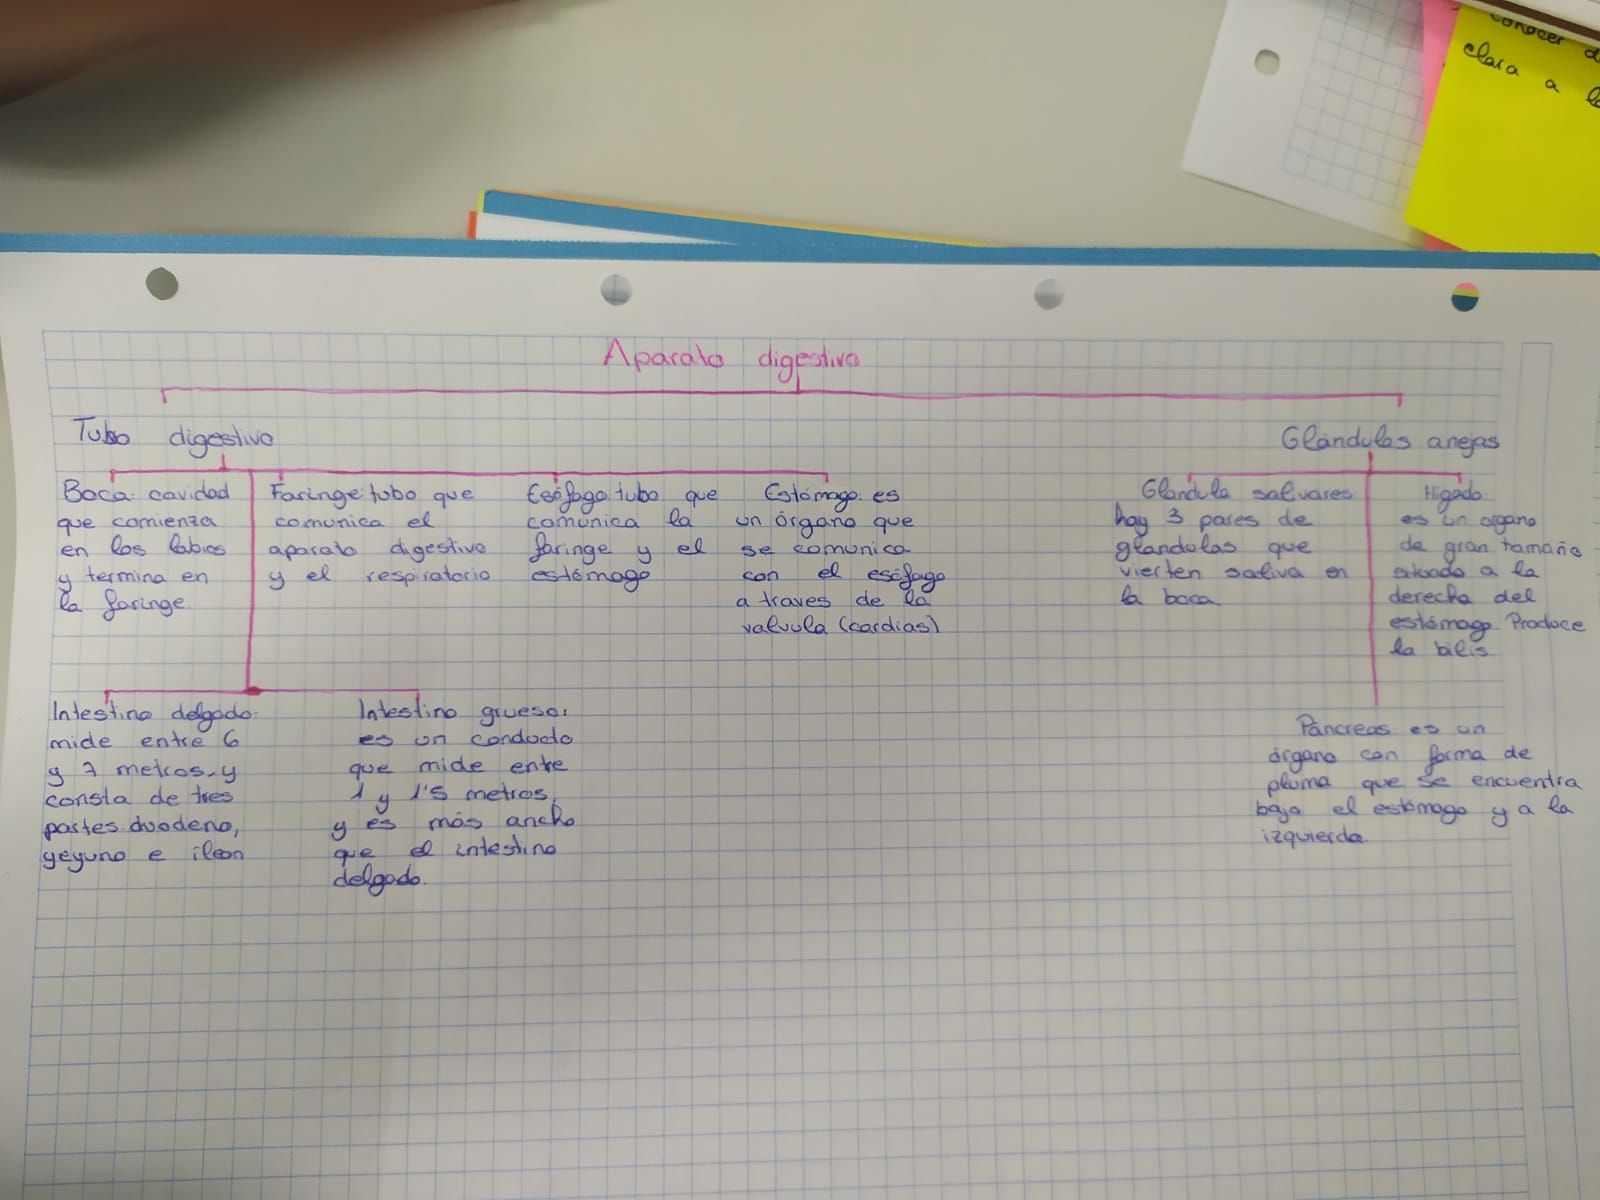 conocer d
clara a l
Aparato digestivo
Tubo digestivo
Glándulas anejas
Boca: cavidad
que comienza
en los labios
y termina en
la faringe
Faringe: tubo que
comunica el
aparato digestivo
y el respiratorio
Esófago: tubo que
comunica la
faringe y el
estómago
Estómago: es
un órgano que
se comunica
con el esófago
a traves de la
valvula (cardias)
Glandula salivares
hay 3 pares de
glandulas que
vierten saliva en
la boca
Higado
es un organo
de gran tamaño
situado a la
derecha del
estómago. Produce
la bilis
Intestino delgado:
mide entre 6
y 7 metros y
consta de tres
partes: duodeno,
yeyuno e ileon
Intestino grueso:
es un conducto
que mide entre
1 y 1'5 metros,
y es más ancho
que el intestino
delgado.
Páncreas es un
órgano con forma de
pluma que se encuentra
bajo el estómago y a la
izquierda.